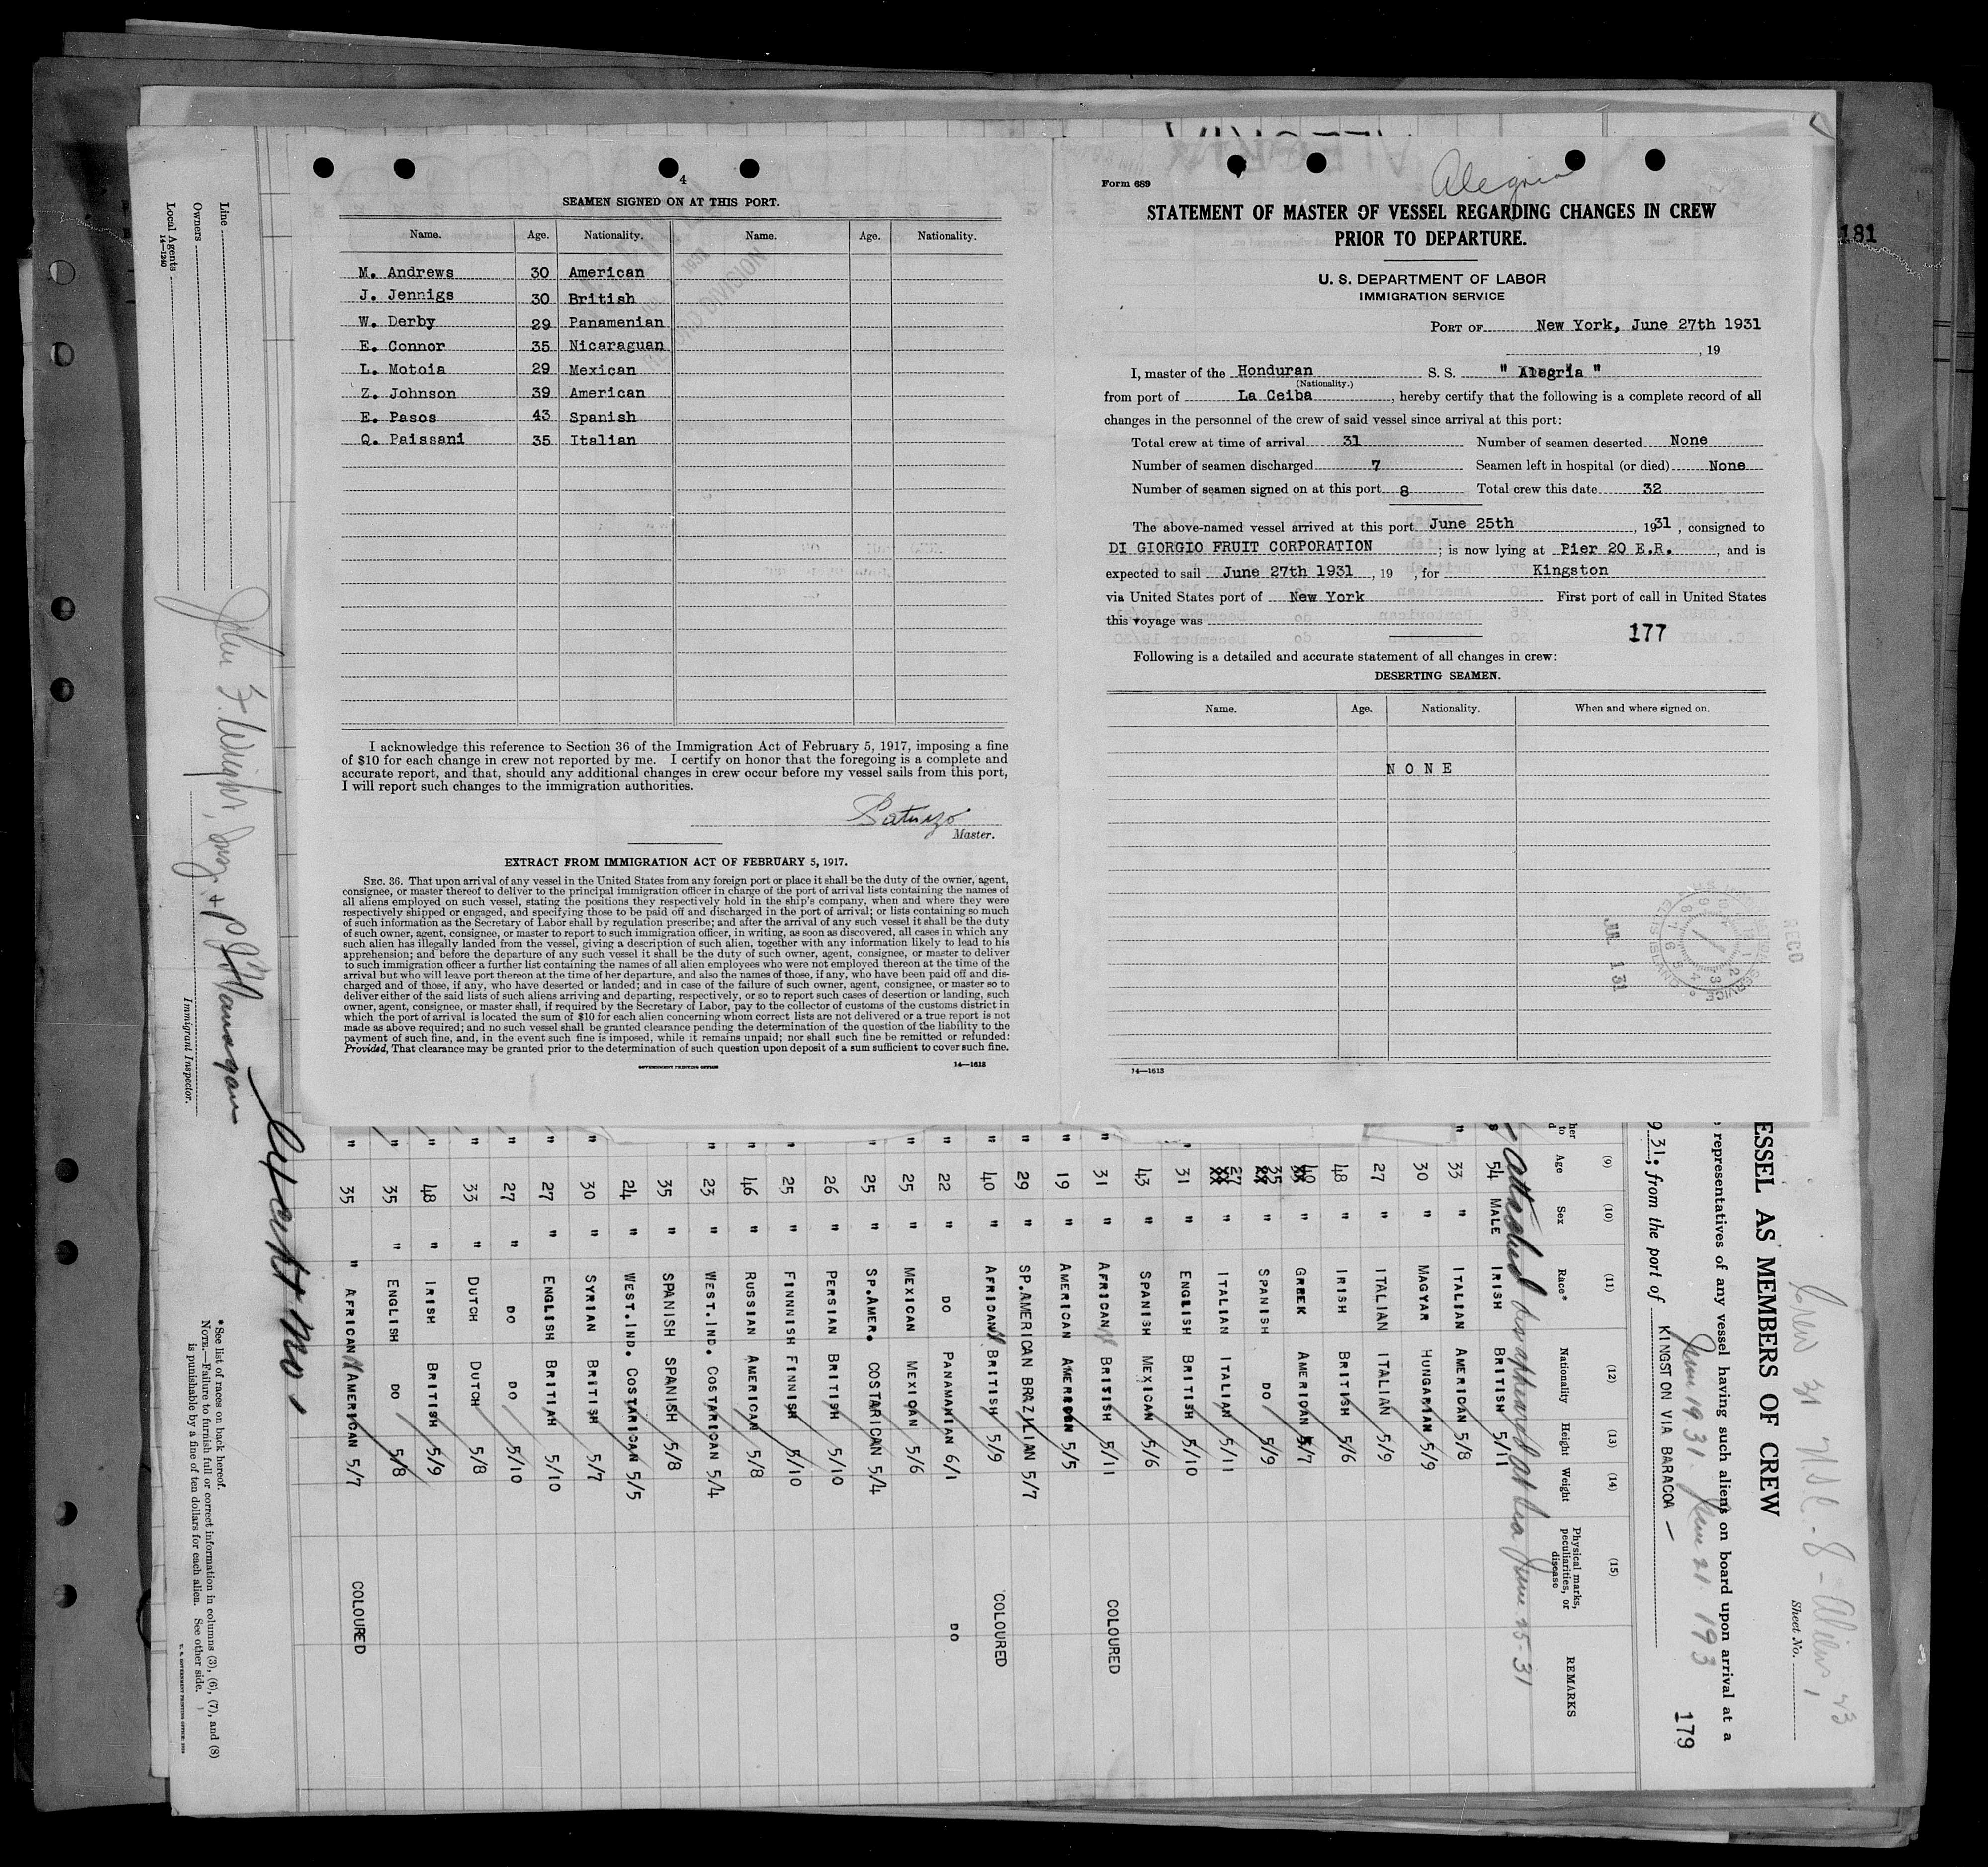 4
SEAMEN SIGNED ON AT THIS PORT.
Name. Age. Nationality. Name. Age. Nationality.
M. Andrews 30 American
J. Jennigs 30 British
W. Derby 29 Panamenian
E. Connor 35 Nicaraguan
L. Motoia 29 Mexican
Z. Johnson 39 American
E. Pasos 43 Spanish
Q. Paissani 35 Italian
I acknowledge this reference to Section 36 of the Immigration Act of February 5, 1917, imposing a fine
of $10 for each change in crew not reported by me. I certify on honor that the foregoing is a complete and
accurate report, and that, should any additional changes in crew occur before my vessel sails from this port,
I will report such changes to the immigration authorities.
Master.
EXTRACT FROM IMMIGRATION ACT OF FEBRUARY 5, 1917.
SEC. 36. That upon arrival of any vessel in the United States from any foreign port or place it shall be the duty of the owner, agent,
consignee, or master thereof to deliver to the principal immigration officer in charge of the port of arrival lists containing the names of
all aliens employed on such vessel, stating the positions they respectively hold in the ship's company, when and where they were
respectively shipped or engaged, and specifying those to be paid off and discharged in the port of arrival; or lists containing so much
of such information as the Secretary of Labor shall by regulation prescribe; and after the arrival of any such vessel it shall be the duty
of such owner, agent, consignee, or master to report to such immigration officer, in writing, as soon as discovered, all cases in which any
such alien has illegally landed from the vessel, giving a description of such alien, together with any information likely to lead to his
apprehension; and before the departure of any such vessel it shall be the duty of such owner, agent, consignee, or master to deliver
to such immigration officer a further list containing the names of all alien employees who were not employed thereon at the time of the
arrival but who will leave port thereon at the time of her departure, and also the names of those, if any, who have been paid off and dis-
charged and of those, if any, who have deserted or landed; and in case of the failure of such owner, agent, consignee, or master so to
deliver either of the said lists of such aliens arriving and departing, respectively, or so to report such cases of desertion or landing, such
owner, agent, consignee, or master shall, if required by the Secretary of Labor, pay to the collector of customs of the customs district in
which the port of arrival is located the sum of $10 for each alien concerning whom correct lists are not delivered or a true report is not
made as above required; and no such vessel shall be granted clearance pending the determination of the question of the liability to the
payment of such fine, and, in the event such fine is imposed, while it remains unpaid; nor shall such fine be remitted or refunded:
Provided, That clearance may be granted prior to the determination of such question upon deposit of a sum sufficient to cover such fine.
GOVERNMENT PRINTING OFFICE 14—1613
Form 689
Alegria
STATEMENT OF MASTER OF VESSEL REGARDING CHANGES IN CREW
PRIOR TO DEPARTURE.
U. S. DEPARTMENT OF LABOR
IMMIGRATION SERVICE
PORT OF New York, June 27th 1931
, 19
I, master of the Honduran S. S. " Alegria "
(Nationality.)
from port of La Ceiba, hereby certify that the following is a complete record of all
changes in the personnel of the crew of said vessel since arrival at this port:
Total crew at time of arrival 31 Number of seamen deserted None
Number of seamen discharged 7 Seamen left in hospital (or died) None
Number of seamen signed on at this port 8 Total crew this date 32
The above-named vessel arrived at this port June 25th, 1931, consigned to
DI GIORGIO FRUIT CORPORATION; is now lying at Pier 20 E.R., and is
expected to sail June 27th 1931, 19 , for Kingston
via United States port of New York First port of call in United States
this voyage was
177
Following is a detailed and accurate statement of all changes in crew:
DESERTING SEAMEN.
Name. Age. Nationality. When and where signed on.
NONE
JUL 1 31
RECD
14—1613
181
Line
Owners
Local Agents
14—1240
Immigrant Inspector.
*See list of races on back hereof.
NOTE.—Failure to furnish full or correct information in columns (3), (6), (7), and (8)
is punishable by a fine of ten dollars for each alien. See other side.
Sheet No.
ESSEL AS MEMBERS OF CREW
representatives of any vessel having such aliens on board upon arrival at a
179
931; from the port of KINGSTON VIA BARACOA —
(9) (10) (11) (12) (13) (14) (15)
Age Sex Race* Nationality Height Weight Physical marks, peculiarities, or disease REMARKS
attached disappeared at Sea June 25-31
54 MALE IRISH BRITISH 5/11
33 " ITALIAN AMERICAN 5/8
30 " MAGYAR HUNGARIAN 5/9
27 " ITALIAN ITALIAN 5/9
48 " IRISH BRITISH 5/6
40 " GREEK AMERICAN 5/7
35 " SPANISH DO 5/9
27 " ITALIAN ITALIAN 5/11
31 " ENGLISH BRITISH 5/10
43 " SPANISH MEXICAN 5/6
31 " AFRICAN BRITISH 5/11 COLOURED
19 " AMERICAN AMERICAN 5/5
29 " SP.AMERICAN BRAZILIAN 5/7
40 " AFRICAN BRITISH 5/9 COLOURED
22 " DO PANAMANIAN 6/1 DO
25 " MEXICAN MEXICAN 5/6
25 " SP.AMER. COSTARICAN 5/4
26 " PERSIAN BRITISH 5/10
25 " FINNNISH FINNISH 5/10
46 " RUSSIAN AMERICAN 5/8
23 " WEST.IND. COSTARICAN 5/4
35 " SPANISH SPANISH 5/8
24 " WEST.IND. COSTARICAN 5/5
30 " SYRIAN BRITISH 5/7
27 " ENGLISH BRITIAH 5/10
27 " DO DO 5/10
33 " DUTCH DUTCH 5/8
48 " IRISH BRITISH 5/9
35 " ENGLISH DO 5/8
35 " AFRICAN AMERICAN 5/7 COLOURED